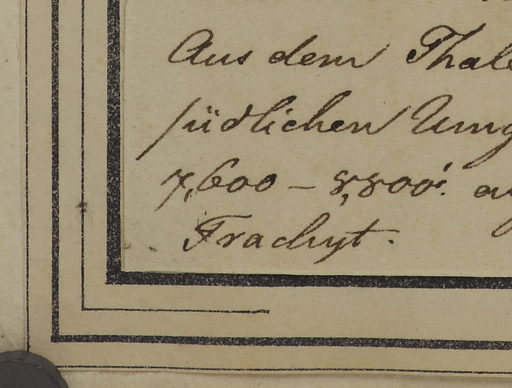 Aus dem Thale
südlichen Umg
7,600 – 8,800'. au
Trachyt.